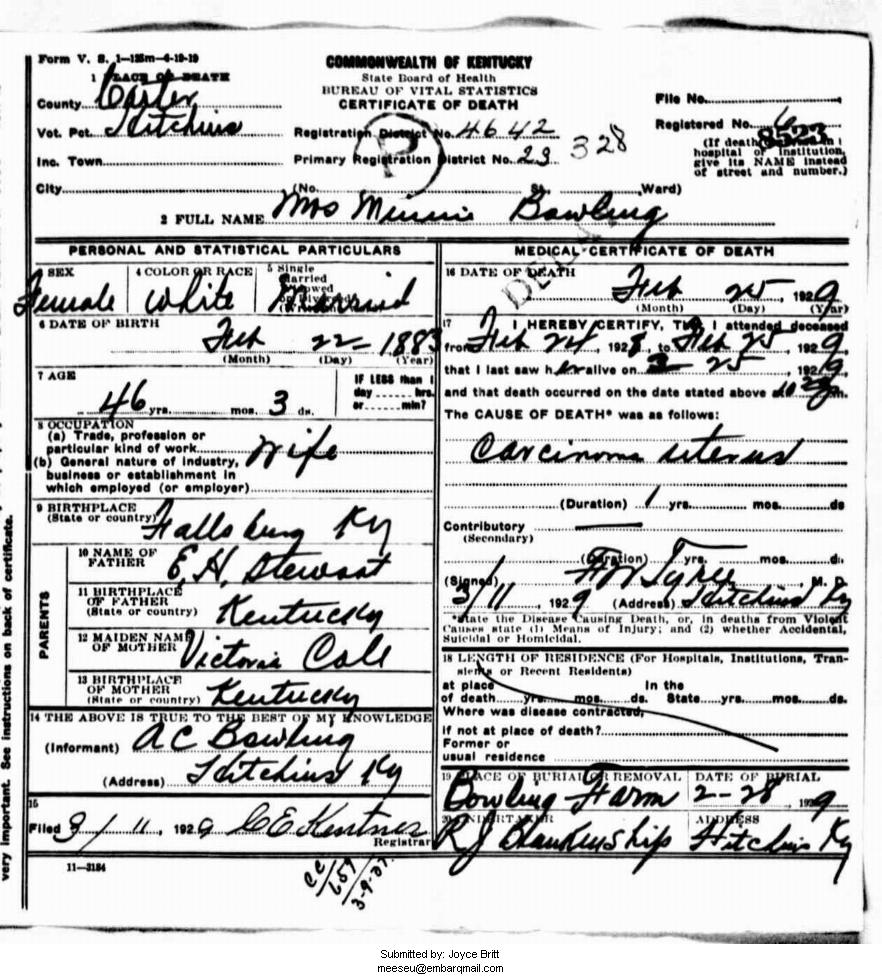 Form V. S. 1-125m-4-19-19
COMMONWEALTH OF KENTUCKY
State Board of Health
BUREAU OF VITAL STATISTICS
CERTIFICATE OF DEATH
1 PLACE OF DEATH
County Carter
Vot. Pct. Hitchins
Inc. Town
City
Registration District No. 4642
Primary Registration District No. 23 328
P
(No. St. Ward)
File No.
Registered No. 6
8523
(If death occurred in a
hospital or institution,
give its NAME instead
of street and number.)
2 FULL NAME Mrs Minnie Bowling
PERSONAL AND STATISTICAL PARTICULARS
3 SEX Female
4 COLOR OR RACE White
5 Single
Married
Widowed
or Divorced
Married
6 DATE OF BIRTH
Feb 22 1883
(Month) (Day) (Year)
7 AGE
46 yrs. mos. 3 ds.
IF LESS than 1
day hrs.
or min?
8 OCCUPATION
(a) Trade, profession or
particular kind of work Wife
(b) General nature of industry,
business or establishment in
which employed (or employer)
9 BIRTHPLACE
(State or country) Fallsburg Ky
PARENTS
10 NAME OF
FATHER E. H. Stewart
11 BIRTHPLACE
OF FATHER
(State or country) Kentucky
12 MAIDEN NAME
OF MOTHER Victoria Cole
13 BIRTHPLACE
OF MOTHER
(State or country) Kentucky
14 THE ABOVE IS TRUE TO THE BEST OF MY KNOWLEDGE
(Informant) A C Bowling
(Address) Hitchins Ky
15
Filed 3/11, 1929 C E Kentner
Registrar
MEDICAL CERTIFICATE OF DEATH
DELAYED
16 DATE OF DEATH
Feb 25, 1929
(Month) (Day) (Year)
17 I HEREBY CERTIFY, That I attended deceased
from Feb 24, 1928, to Feb 25, 1929,
that I last saw her alive on 2 25, 1929,
and that death occurred on the date stated above at m.
The CAUSE OF DEATH* was as follows:
Carcinoma uterus
(Duration) 1 yrs. mos. ds
Contributory
(Secondary)
(Duration) yrs. mos. ds.
(Signed) Tyree M. D.
3/11, 1929 (Address) Hitchins Ky
*State the Disease Causing Death, or, in deaths from Violent
Causes state (1) Means of Injury; and (2) whether Accidental,
Suicidal or Homicidal.
18 LENGTH OF RESIDENCE (For Hospitals, Institutions, Tran-
sients or Recent Residents)
at place In the
of death yrs. mos. ds. State yrs. mos. ds.
Where was disease contracted,
if not at place of death?
Former or
usual residence
19 PLACE OF BURIAL OR REMOVAL
Bowling Farm
DATE OF BURIAL
2-28, 1929
20 UNDERTAKER
R J Blankenship
ADDRESS
Hitchins Ky
11-3184
CC
659
3-9-37
very important. See instructions on back of certificate.
Submitted by: Joyce Britt
meeseu@embarqmail.com